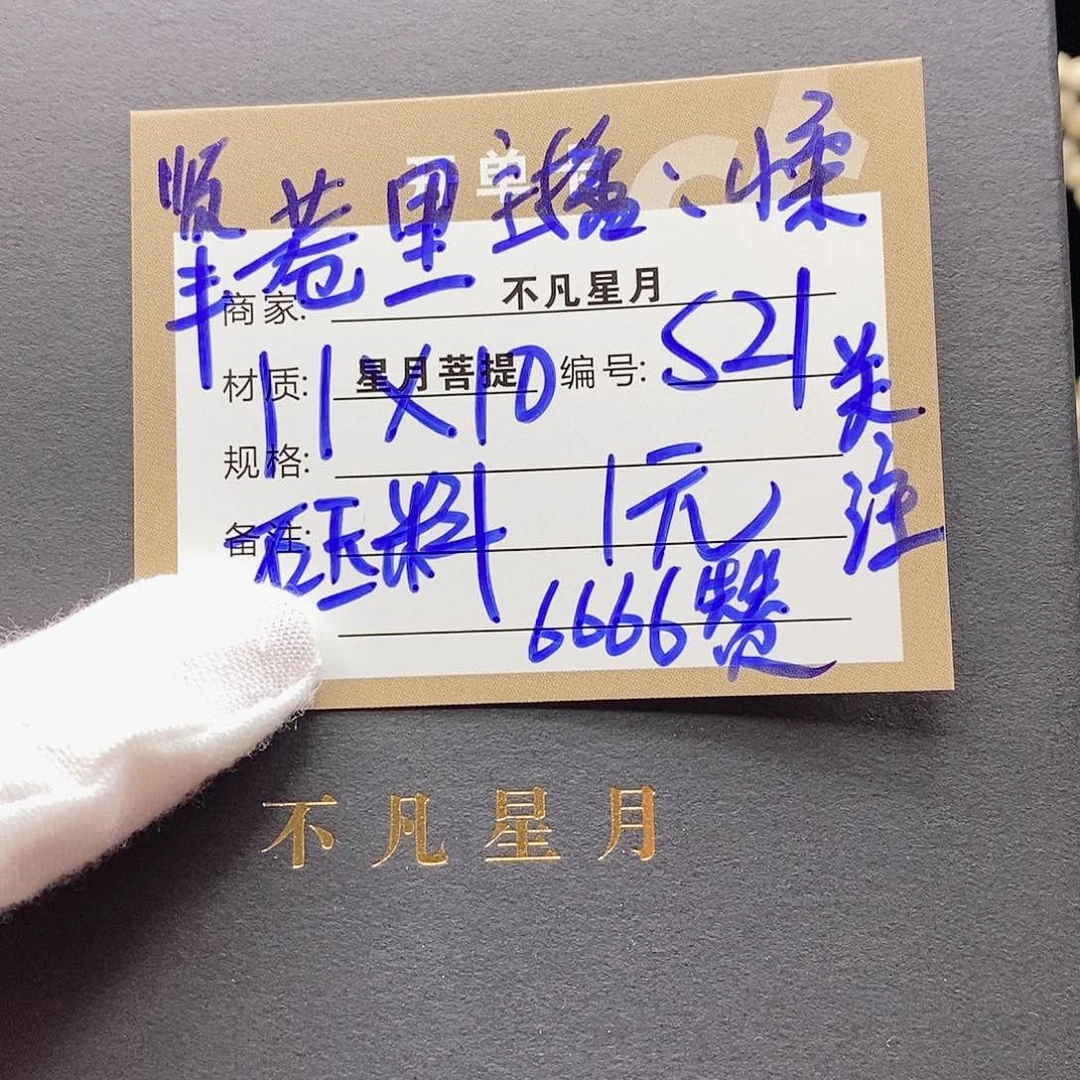 顺丰
巷里
商家: 不凡星月
材质: 星月菩提 编号: S21
11×10
规格:
备注:
料 1元
6666赞
关注
不凡星月